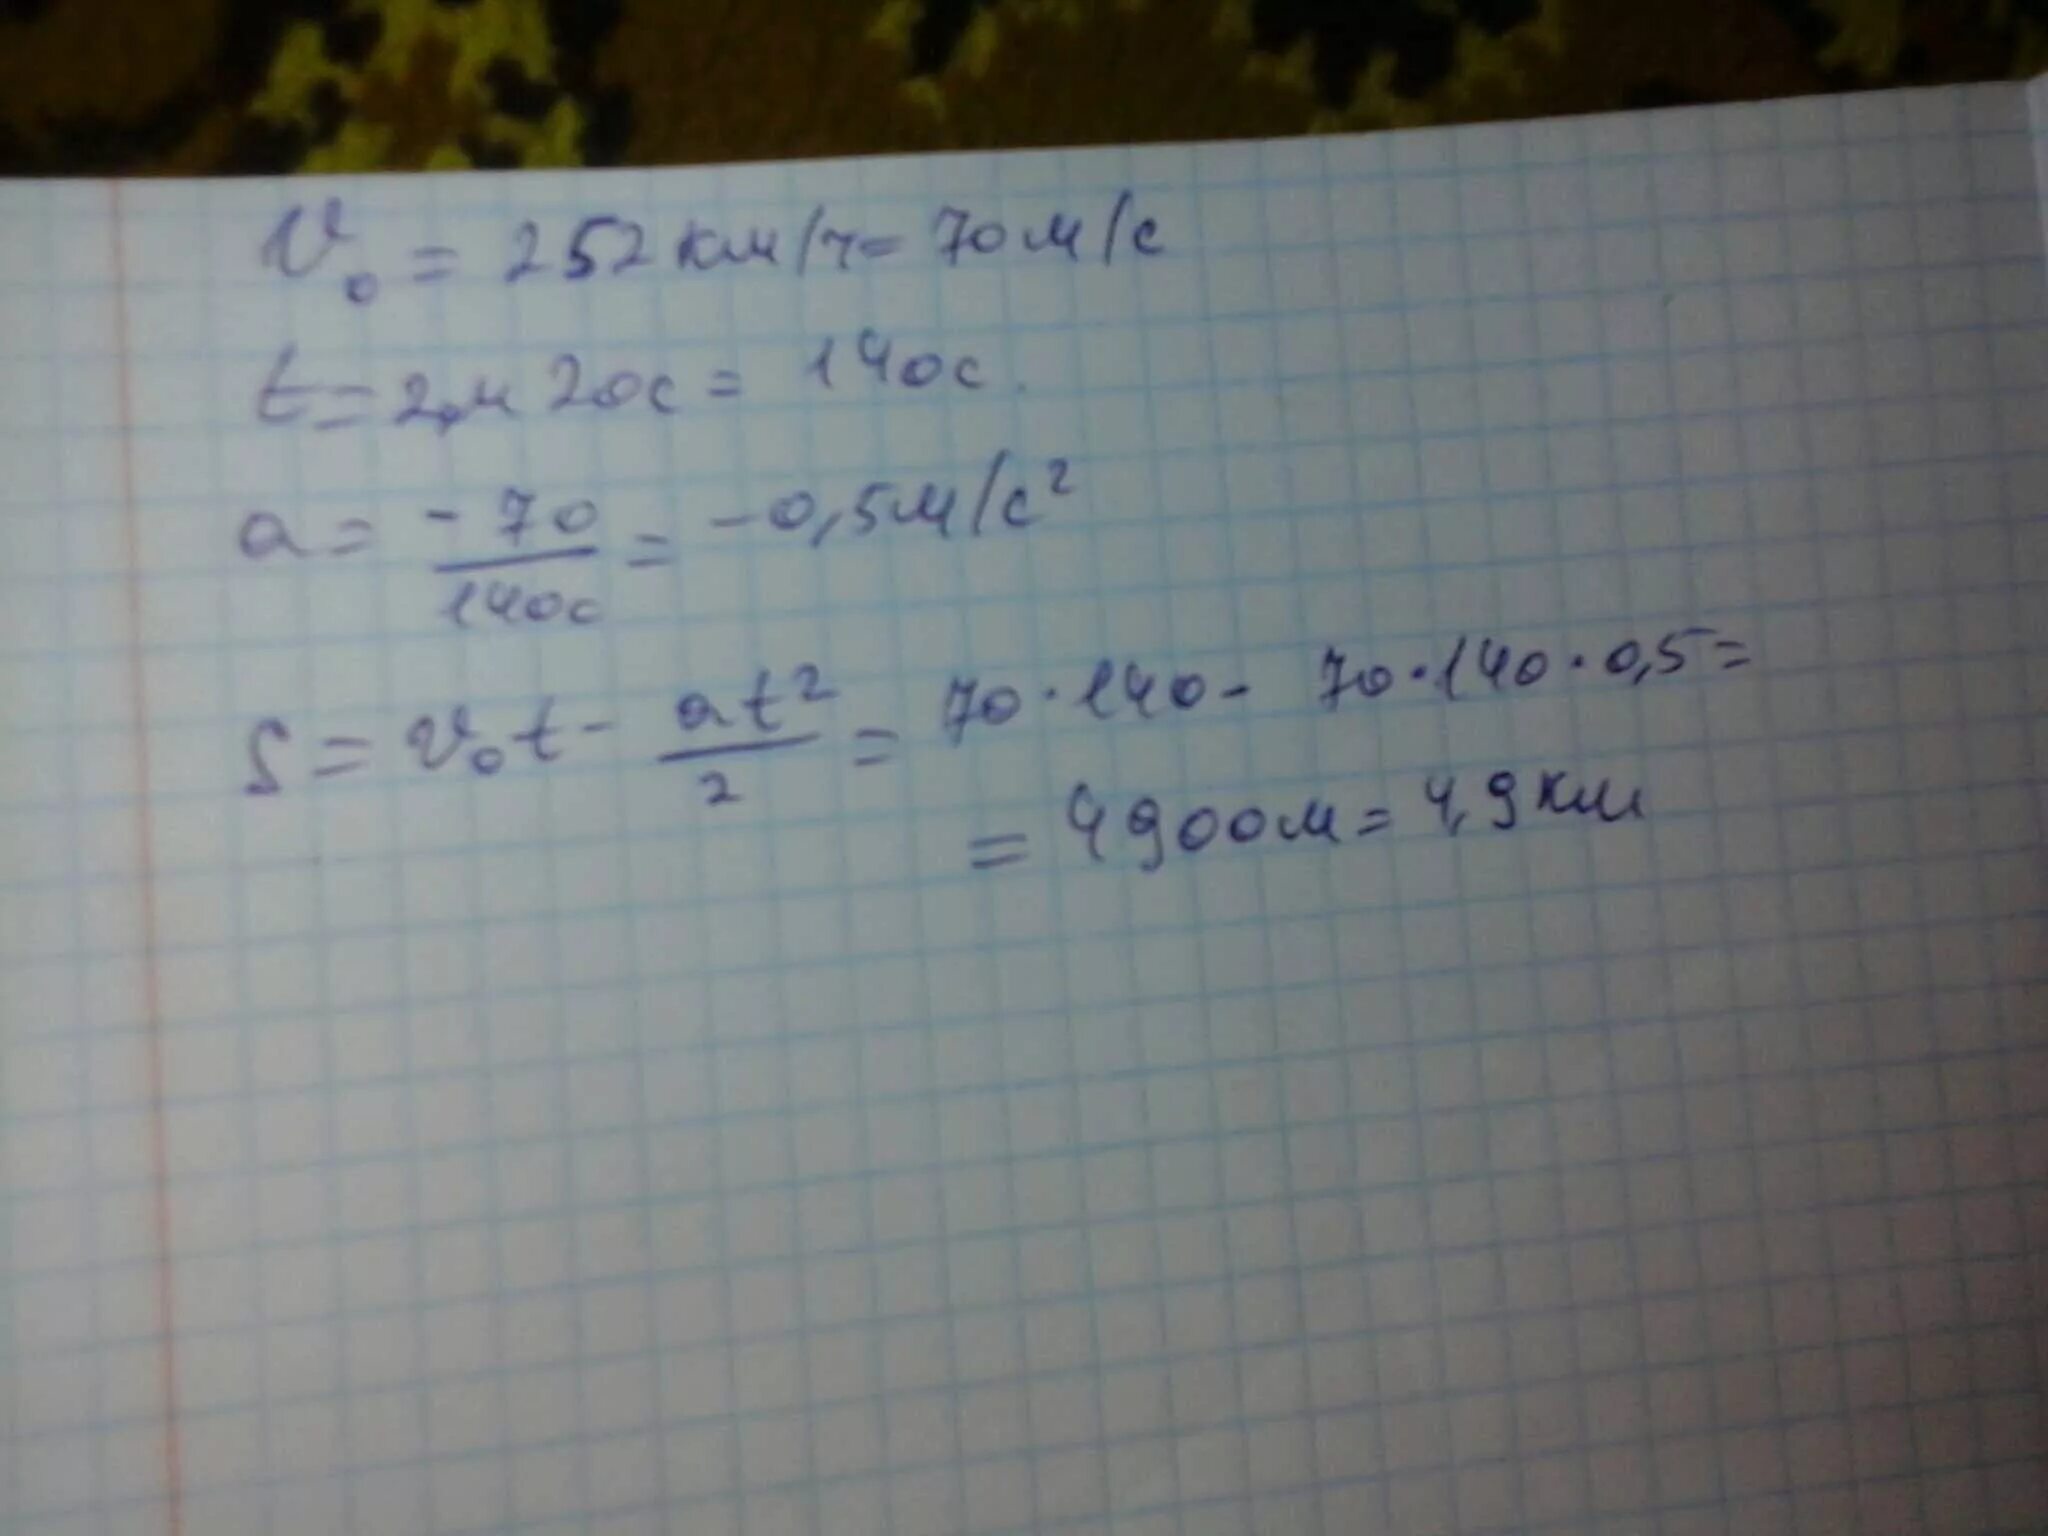 V₀ = 252 км/ч = 70 м/с
t = 2м 20с = 140с.
a = -70/140с = -0,5 м/с²
S = V₀t - at²/2 = 70·140 - 70·140·0,5 =
= 4900м = 4,9 км